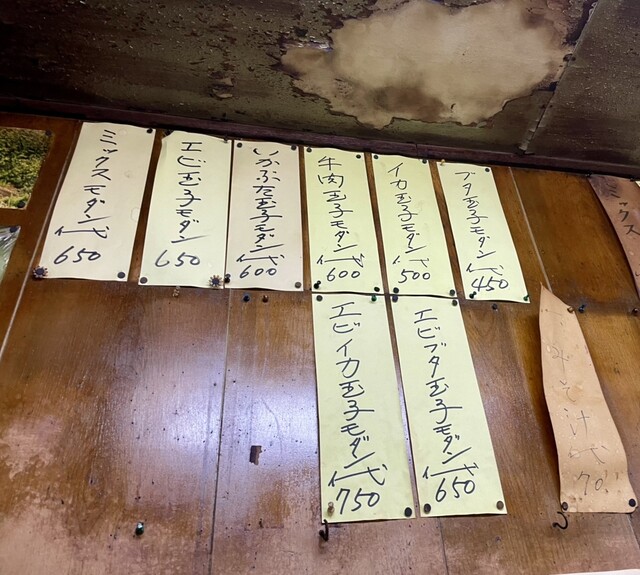 ミックス
ブタ玉子モダン代 450
イカ玉子モダン代 500
牛肉玉子モダン代 600
いかぶた玉子モダン代 600
エビ玉子モダン 650
ミックスモダン代 650
みそ汁代 70
エビブタ玉子モダン代 650
エビイカ玉子モダン代 750